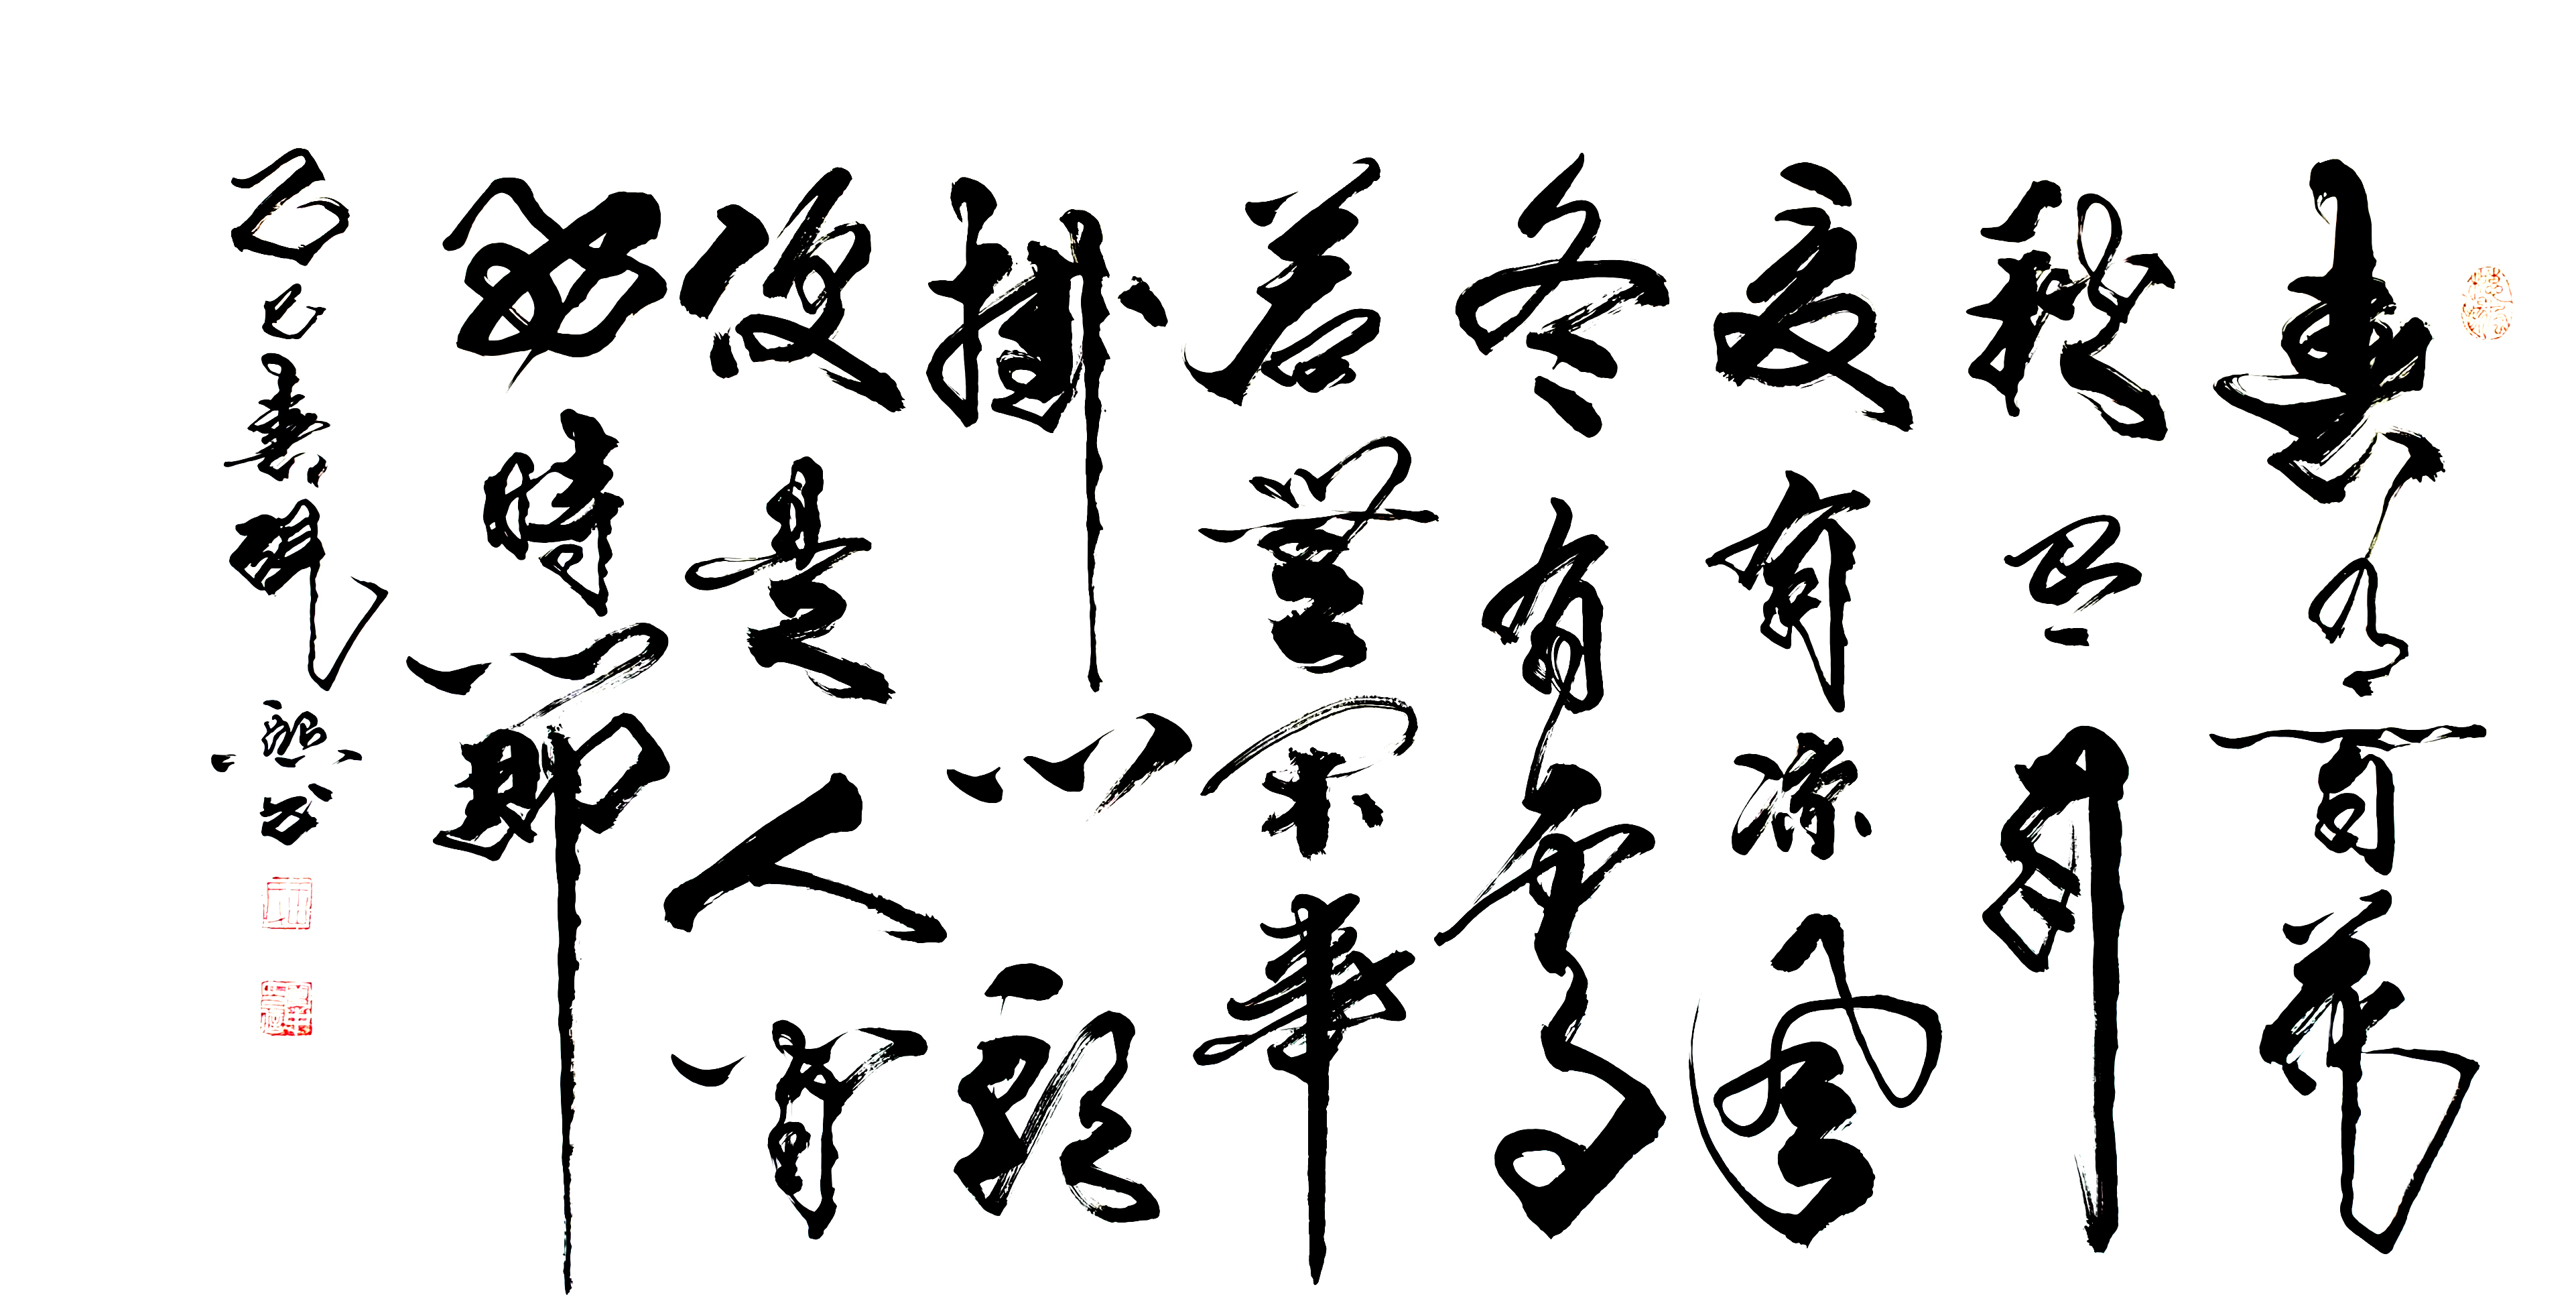 春有百花
秋有月
夏有涼風
冬有雪
若無閑事
掛心頭
便是人間
好時節
乙巳春書